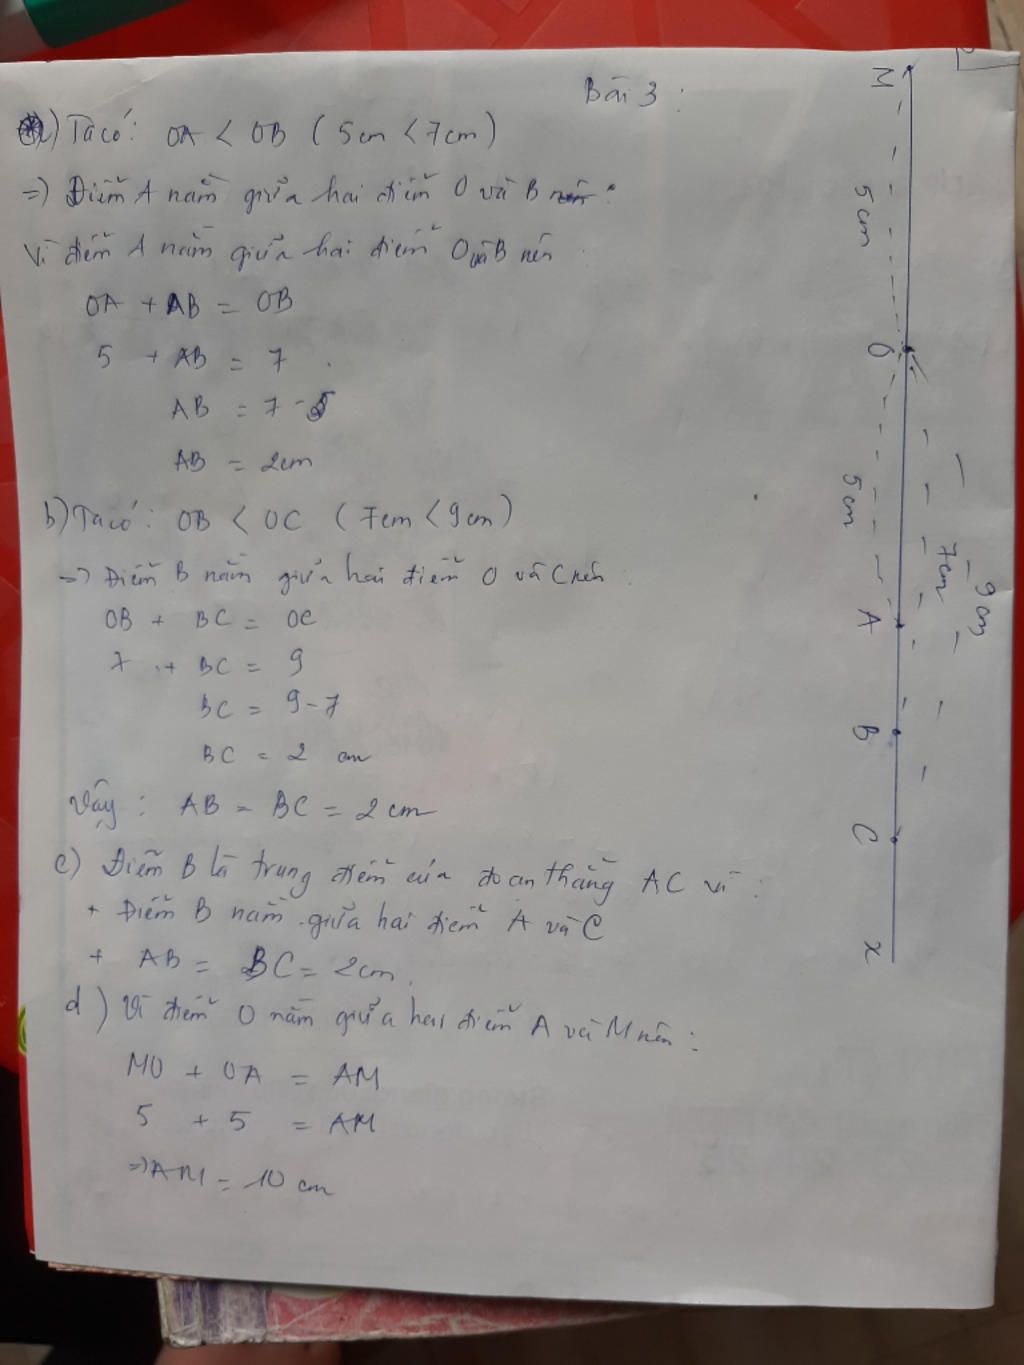 Bài 3 :
a) Ta có: OA < OB ( 5cm < 7cm )
=> Điểm A nằm giữa hai điểm O và B
Vì điểm A nằm giữa hai điểm O và B nên
OA + AB = OB
5 + AB = 7
AB = 7 - 5
AB = 2cm
b) Ta có : OB < OC ( 7cm < 9cm )
=> Điểm B nằm giữa hai điểm O và C nên
OB + BC = OC
7 + BC = 9
BC = 9 - 7
BC = 2 cm
Vậy : AB = BC = 2 cm
c) Điểm B là trung điểm của đoạn thẳng AC vì :
+ Điểm B nằm giữa hai điểm A và C
+ AB = BC = 2cm.
d ) Vì điểm O nằm giữa hai điểm A và M nên :
MO + OA = AM
5 + 5 = AM
=> AM = 10 cm
M
5 cm
O
5 cm
7cm
9 cm
A
B
C
x